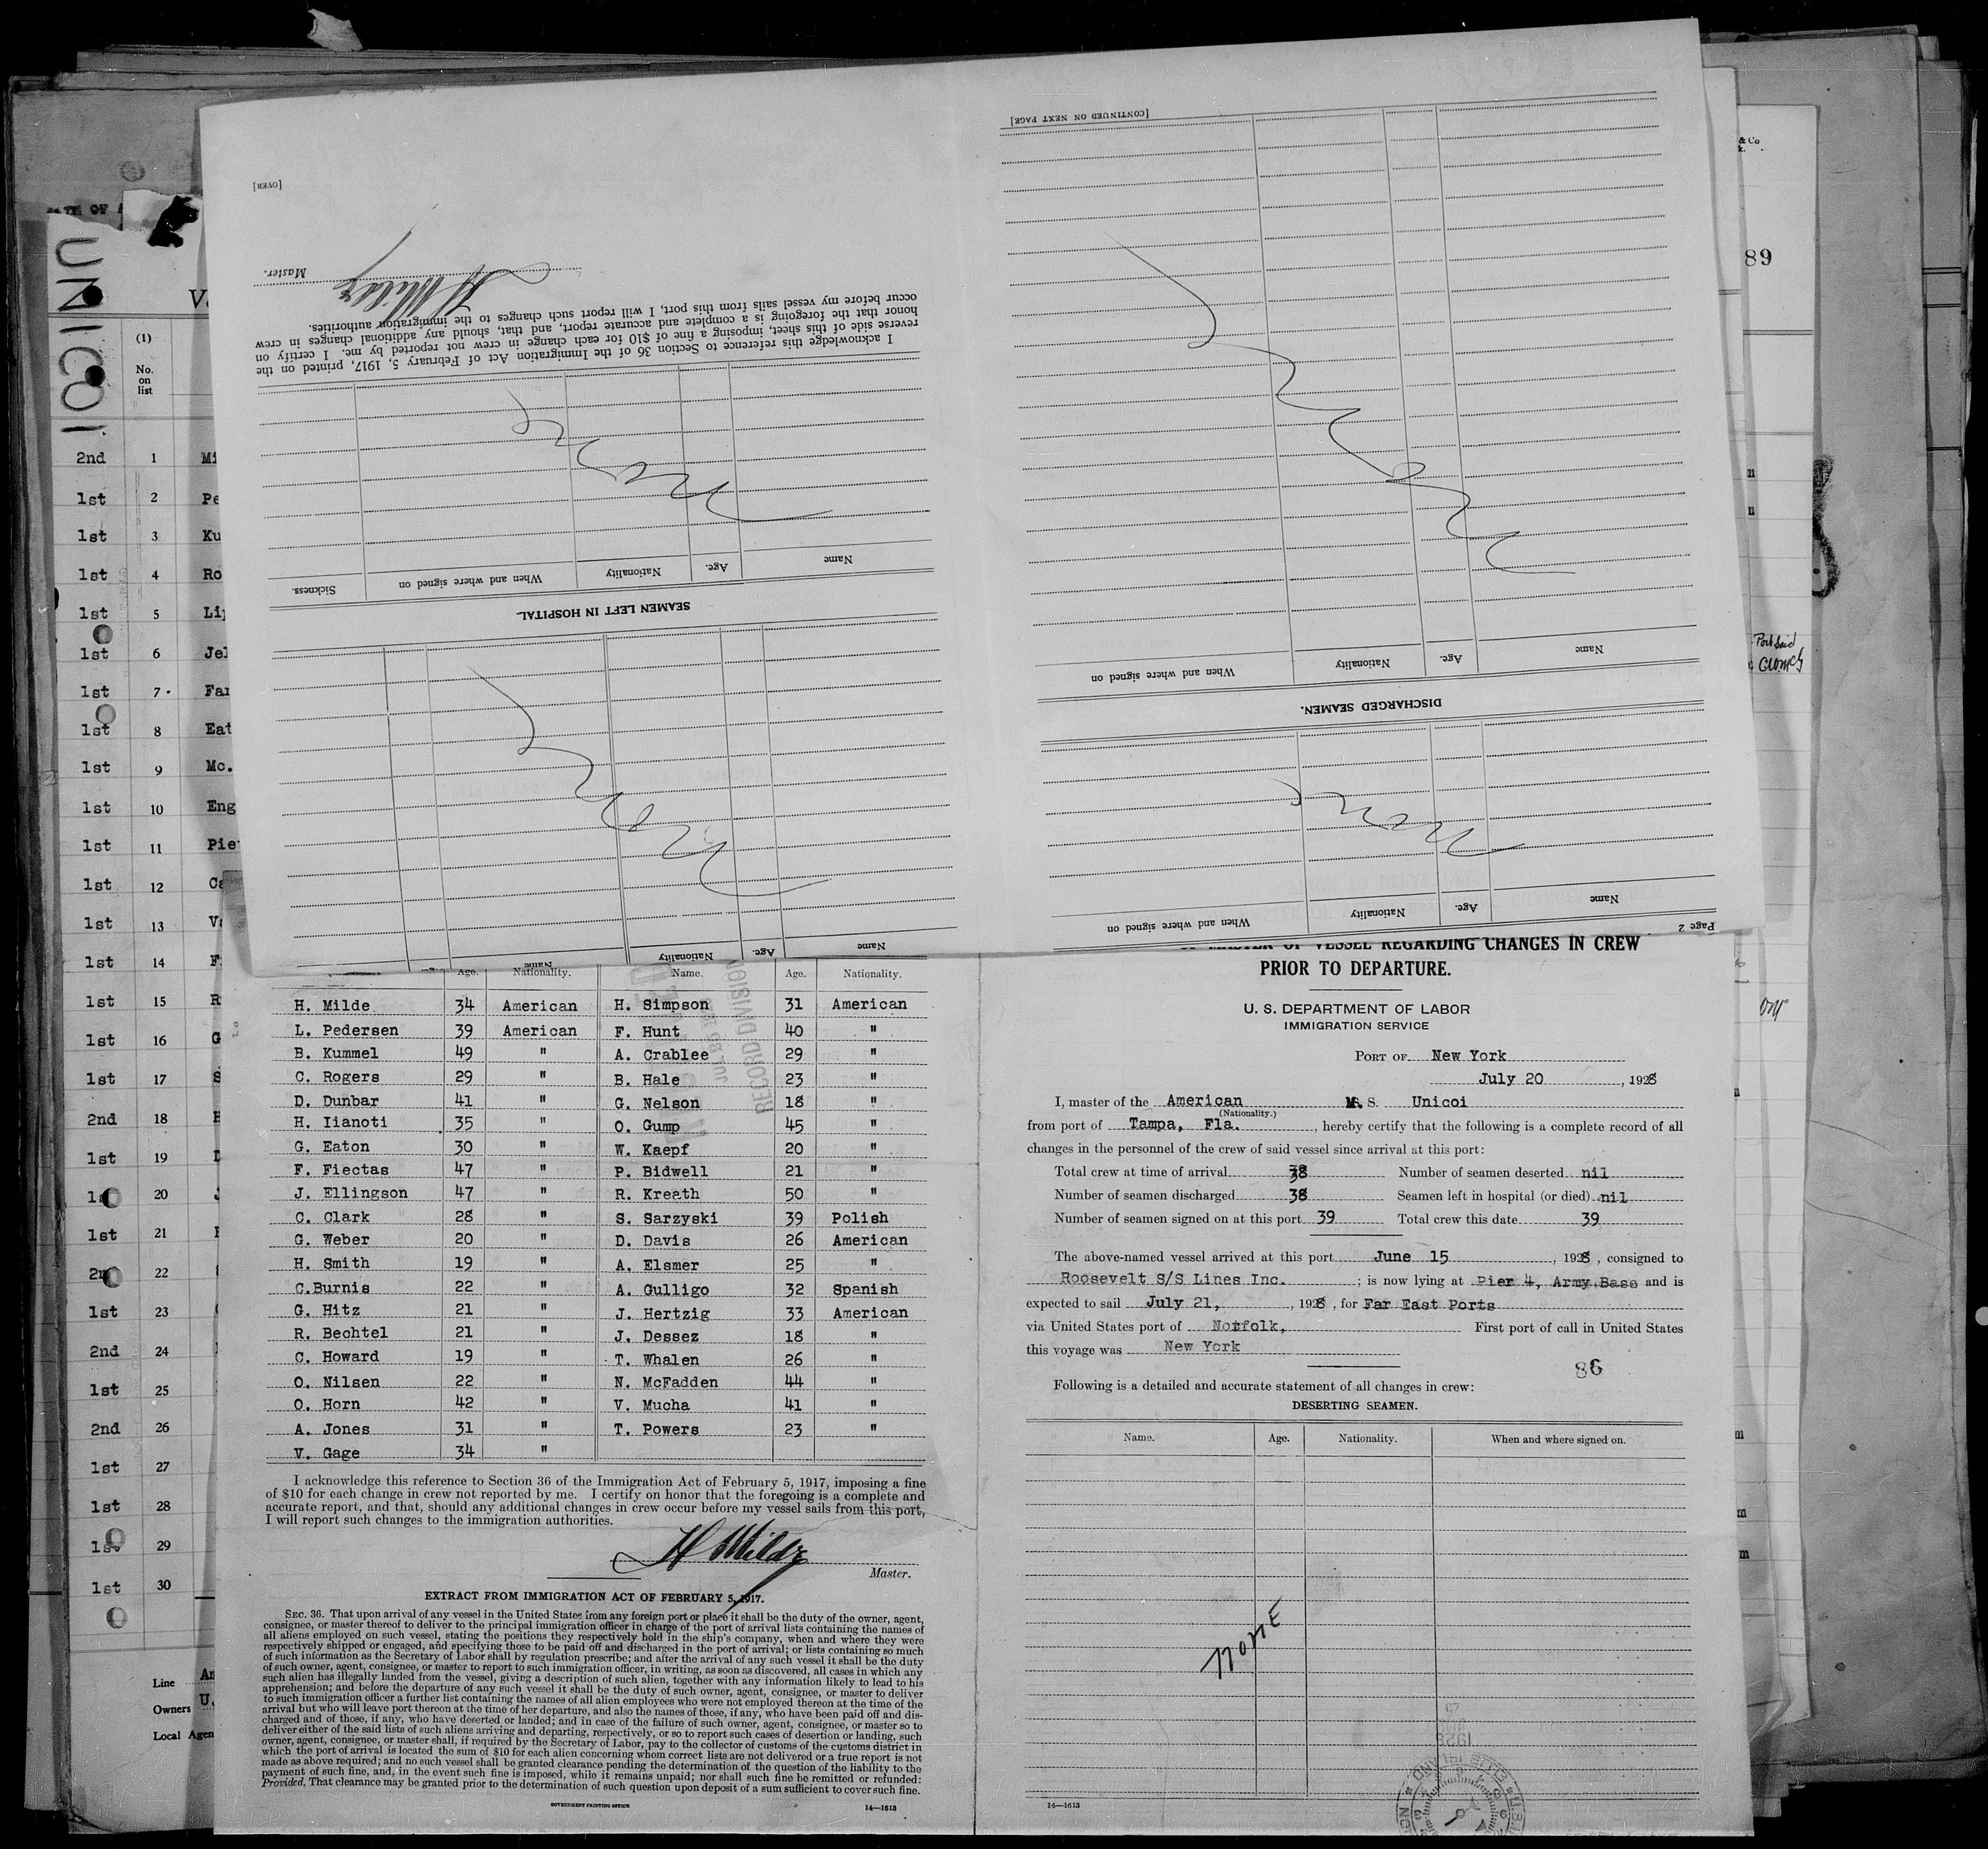 [OVER]
Master.
H Milde
I acknowledge this reference to Section 36 of the Immigration Act of February 5, 1917, printed on the
reverse side of this sheet, imposing a fine of $10 for each change in crew not reported by me. I certify on
honor that the foregoing is a complete and accurate report, and that, should any additional changes in crew
occur before my vessel sails from this port, I will report such changes to the immigration authorities.
None
Name Age. Nationality When and where signed on Sickness.
SEAMEN LEFT IN HOSPITAL.
None
Name Age. Nationality Name
[CONTINUED ON NEXT PAGE]
None
Name Age. Nationality When and where signed on
DISCHARGED SEAMEN.
None
Name Age. Nationality When and where signed on
Page 2
UNICOI
(1)
No.
on
list
2nd 1 Mi
1st 2 Pe
1st 3 Ku
1st 4 Ro
1st 5 Li
1st 6 Jel
1st 7 Far
1st 8 Eat
1st 9 Mc.
1st 10 Eng
1st 11 Pie
1st 12 Ca
1st 13 Va
1st 14 F
1st 15 R
1st 16 G
1st 17 S
2nd 18
1st 19
20
1st 21
22
1st 23
2nd 24
1st 25
2nd 26
1st 27
1st 28
29
1st 30
Line Am
Owners U.
Local Agen
& Co
89
Port Said
Age. Nationality. Name. Age. Nationality.
H. Milde 34 American H. Simpson 31 American
L. Pedersen 39 American F. Hunt 40 "
B. Kummel 49 " A. Crablee 29 "
C. Rogers 29 " B. Hale 23 "
D. Dunbar 41 " G. Nelson 18 "
H. Iianoti 35 " O. Gump 45 "
G. Eaton 30 " W. Kaepf 20 "
F. Fiectas 47 " P. Bidwell 21 "
J. Ellingson 47 " R. Kreath 50 "
C. Clark 28 " S. Sarzyski 39 Polish
G. Weber 20 " D. Davis 26 American
H. Smith 19 " A. Elsmer 25 "
C.Burnis 22 " A. Gulligo 32 Spanish
G. Hitz 21 " J. Hertzig 33 American
R. Bechtel 21 " J. Dessez 18 "
C. Howard 19 " T. Whalen 26 "
O. Nilsen 22 " N. McFadden 44 "
O. Horn 42 " V. Mucha 41 "
A. Jones 31 " T. Powers 23 "
V. Gage 34 "
RECORD DIVISION
I acknowledge this reference to Section 36 of the Immigration Act of February 5, 1917, imposing a fine
of $10 for each change in crew not reported by me. I certify on honor that the foregoing is a complete and
accurate report, and that, should any additional changes in crew occur before my vessel sails from this port,
I will report such changes to the immigration authorities.
H Milde
Master.
EXTRACT FROM IMMIGRATION ACT OF FEBRUARY 5, 1917.
SEC. 36. That upon arrival of any vessel in the United States from any foreign port or place it shall be the duty of the owner, agent,
consignee, or master thereof to deliver to the principal immigration officer in charge of the port of arrival lists containing the names of
all aliens employed on such vessel, stating the positions they respectively hold in the ship's company, when and where they were
respectively shipped or engaged, and specifying those to be paid off and discharged in the port of arrival; or lists containing so much
of such information as the Secretary of Labor shall by regulation prescribe; and after the arrival of any such vessel it shall be the duty
of such owner, agent, consignee, or master to report to such immigration officer, in writing, as soon as discovered, all cases in which any
such alien has illegally landed from the vessel, giving a description of such alien, together with any information likely to lead to his
apprehension; and before the departure of any such vessel it shall be the duty of such owner, agent, consignee, or master to deliver
to such immigration officer a further list containing the names of all alien employees who were not employed thereon at the time of the
arrival but who will leave port thereon at the time of her departure, and also the names of those, if any, who have been paid off and dis-
charged and of those, if any, who have deserted or landed; and in case of the failure of such owner, agent, consignee, or master so to
deliver either of the said lists of such aliens arriving and departing, respectively, or so to report such cases of desertion or landing, such
owner, agent, consignee, or master shall, if required by the Secretary of Labor, pay to the collector of customs of the customs district in
which the port of arrival is located the sum of $10 for each alien concerning whom correct lists are not delivered or a true report is not
made as above required; and no such vessel shall be granted clearance pending the determination of the question of the liability to the
payment of such fine, and, in the event such fine is imposed, while it remains unpaid; nor shall such fine be remitted or refunded:
Provided, That clearance may be granted prior to the determination of such question upon deposit of a sum sufficient to cover such fine.
GOVERNMENT PRINTING OFFICE 14—1613
MASTER OF VESSEL REGARDING CHANGES IN CREW
PRIOR TO DEPARTURE.
U. S. DEPARTMENT OF LABOR
IMMIGRATION SERVICE
PORT OF New York
July 20, 1928
I, master of the American M. S. Unicoi
(Nationality.)
from port of Tampa, Fla., hereby certify that the following is a complete record of all
changes in the personnel of the crew of said vessel since arrival at this port:
Total crew at time of arrival 38 Number of seamen deserted nil
Number of seamen discharged 38 Seamen left in hospital (or died) nil
Number of seamen signed on at this port 39 Total crew this date 39
The above-named vessel arrived at this port June 15, 1928, consigned to
Roosevelt S/S Lines Inc. ; is now lying at Pier 4, Army Base and is
expected to sail July 21, , 1928, for Far East Ports
via United States port of Norfolk, First port of call in United States
this voyage was New York
86
Following is a detailed and accurate statement of all changes in crew:
DESERTING SEAMEN.
Name. Age. Nationality. When and where signed on.
NONE
1928
ELLIS ISLAND
14—1613